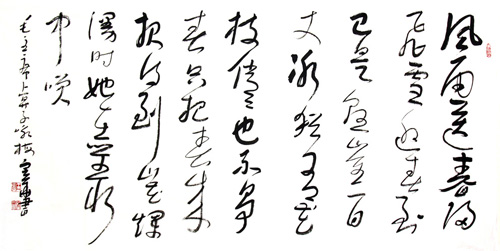 風雨送春歸
飛雪迎春到
已是懸崖百
丈冰猶有花
枝俏俏也不爭
春只把春來
報待到山花爛
漫時她在叢
中笑
毛主席卜算子咏梅